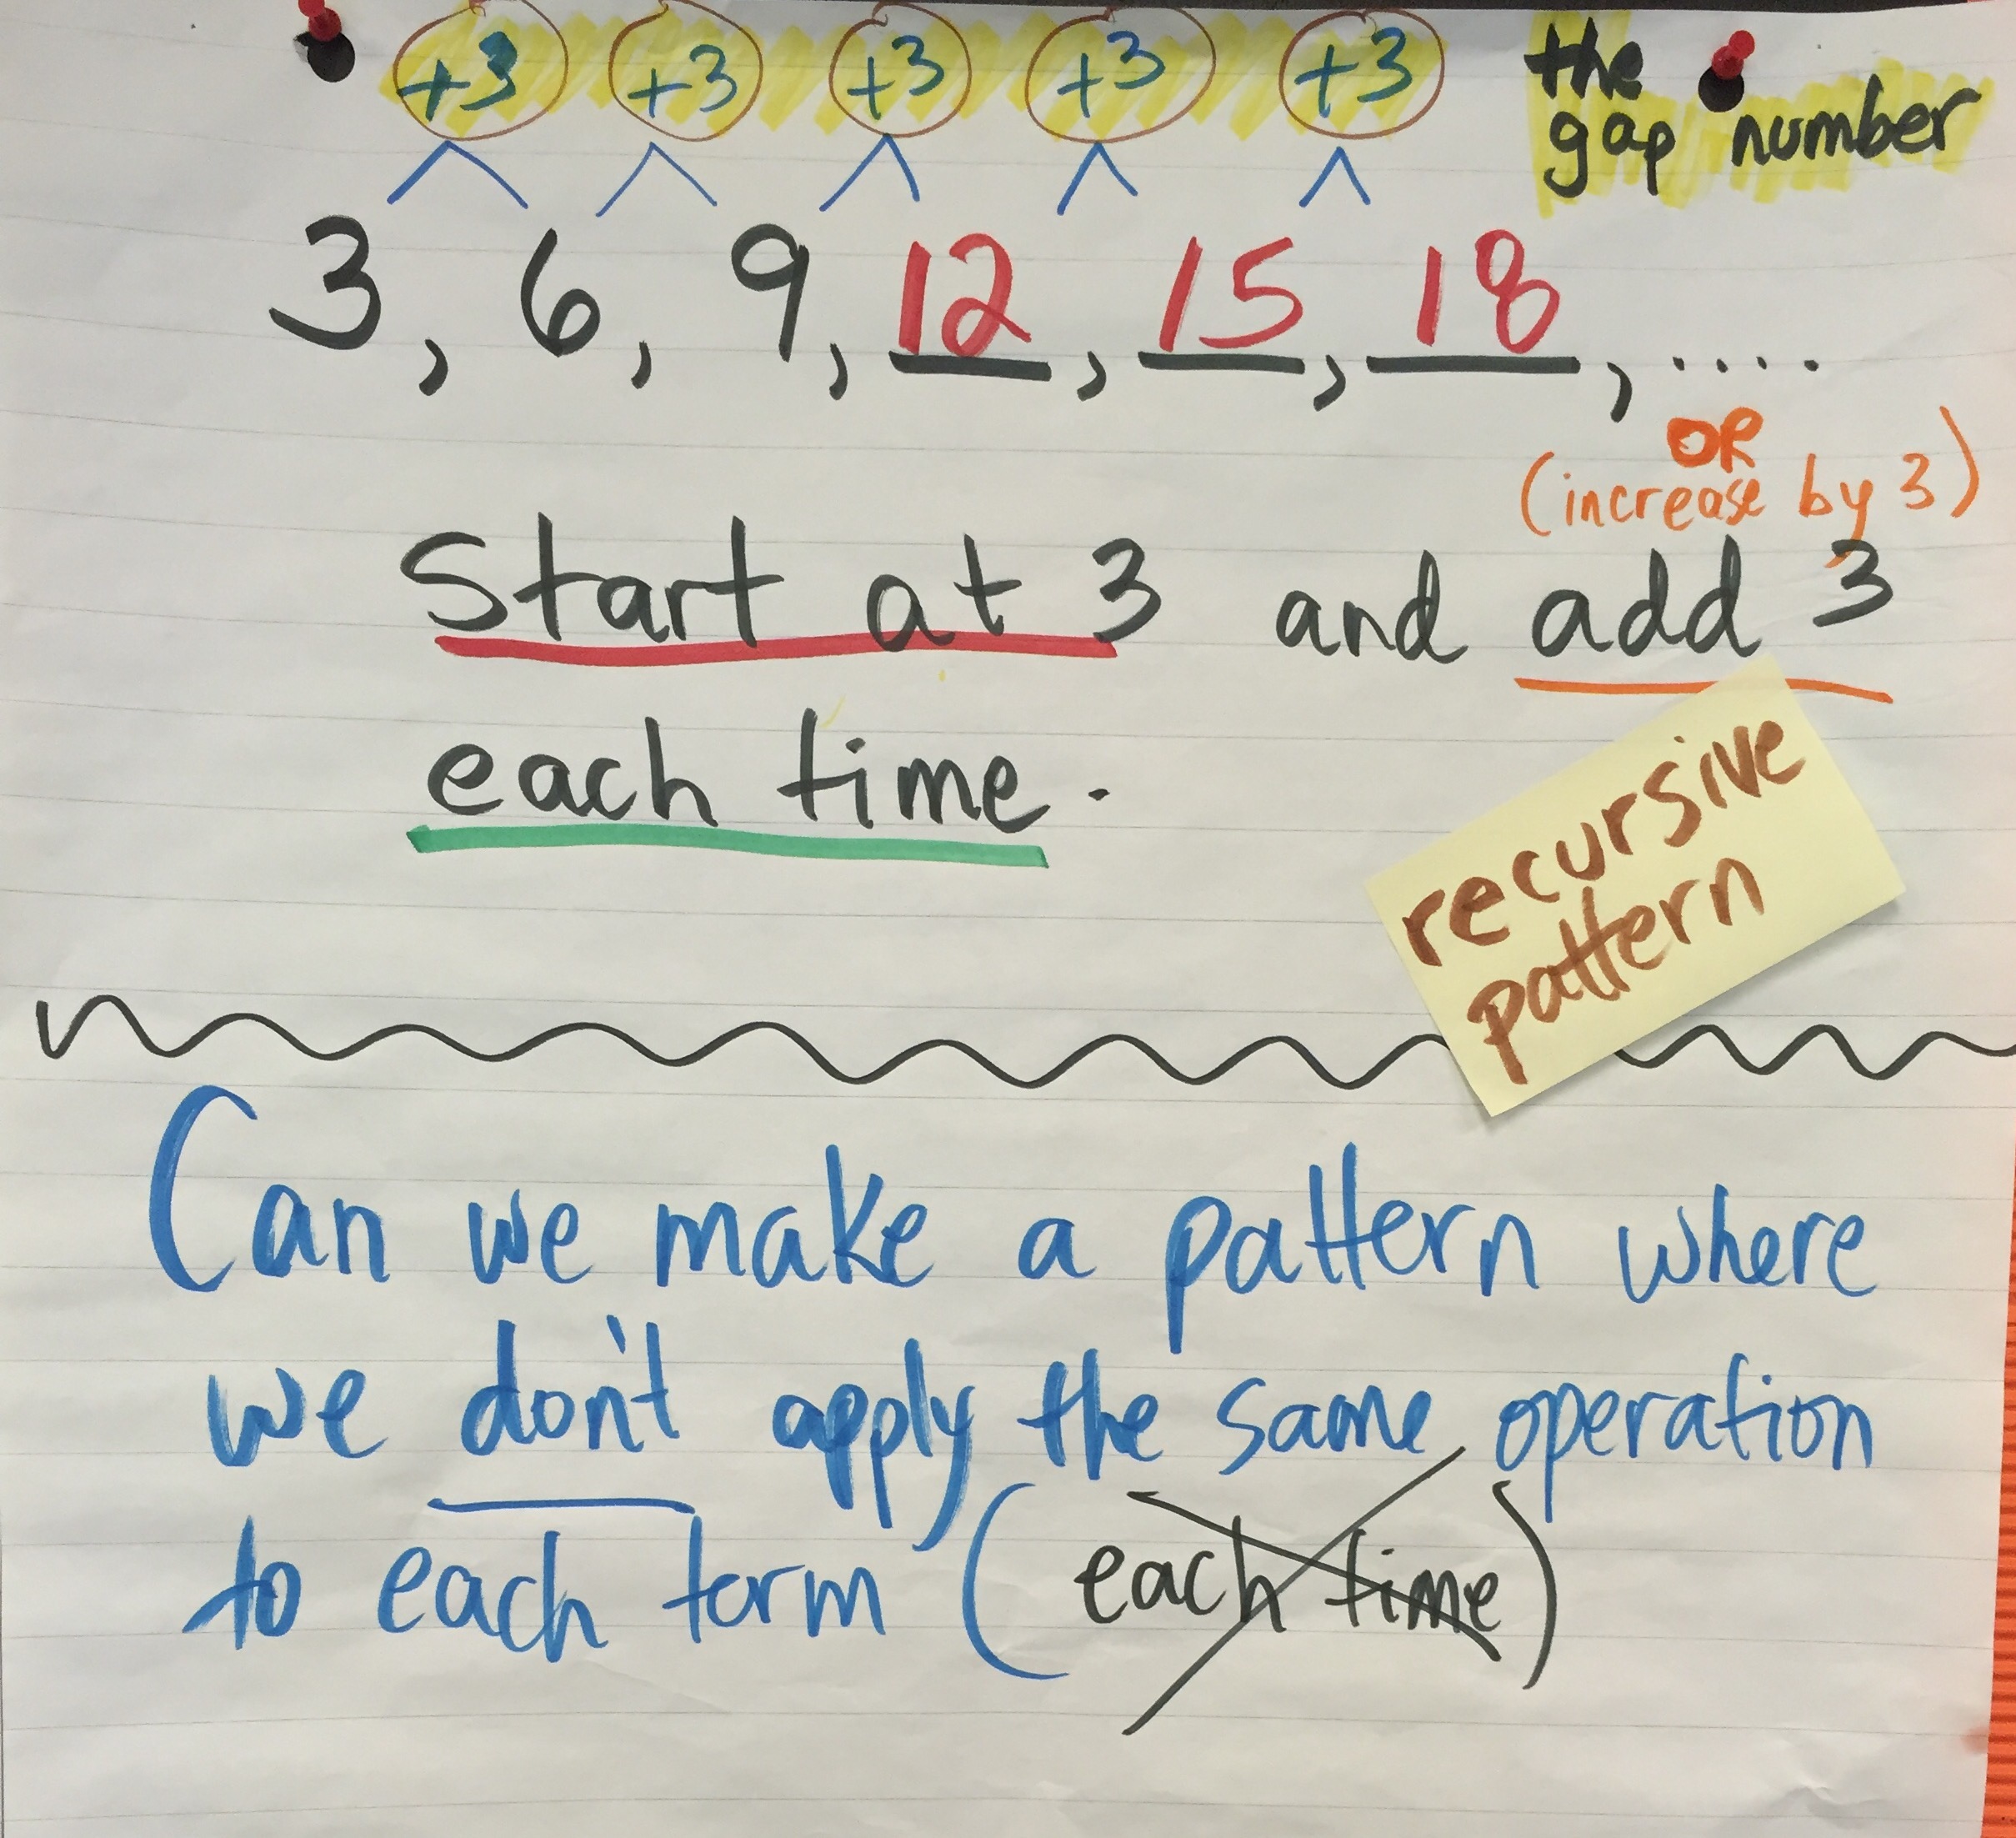 +3 +3 +3 +3 +3
the
gap number
3, 6, 9, 12, 15, 18, ....
OR
(increase by 3)
Start at 3 and add 3
each time.
recursive
pattern
Can we make a pattern where
we don't apply the same operation
to each term (each time)